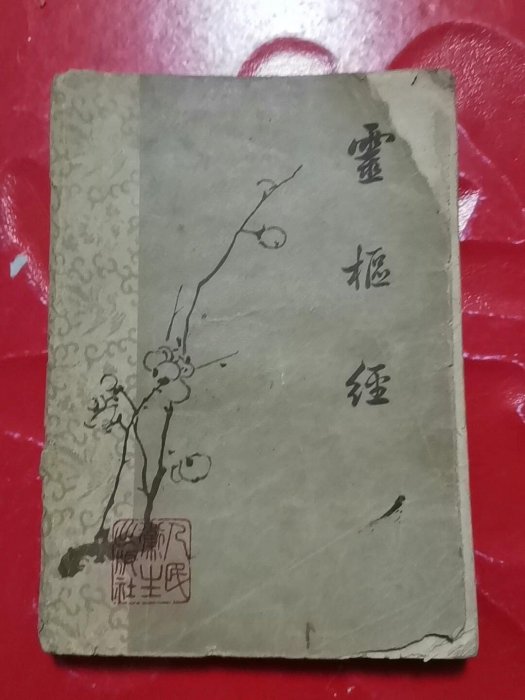 靈樞經
人民
衛生
出版社